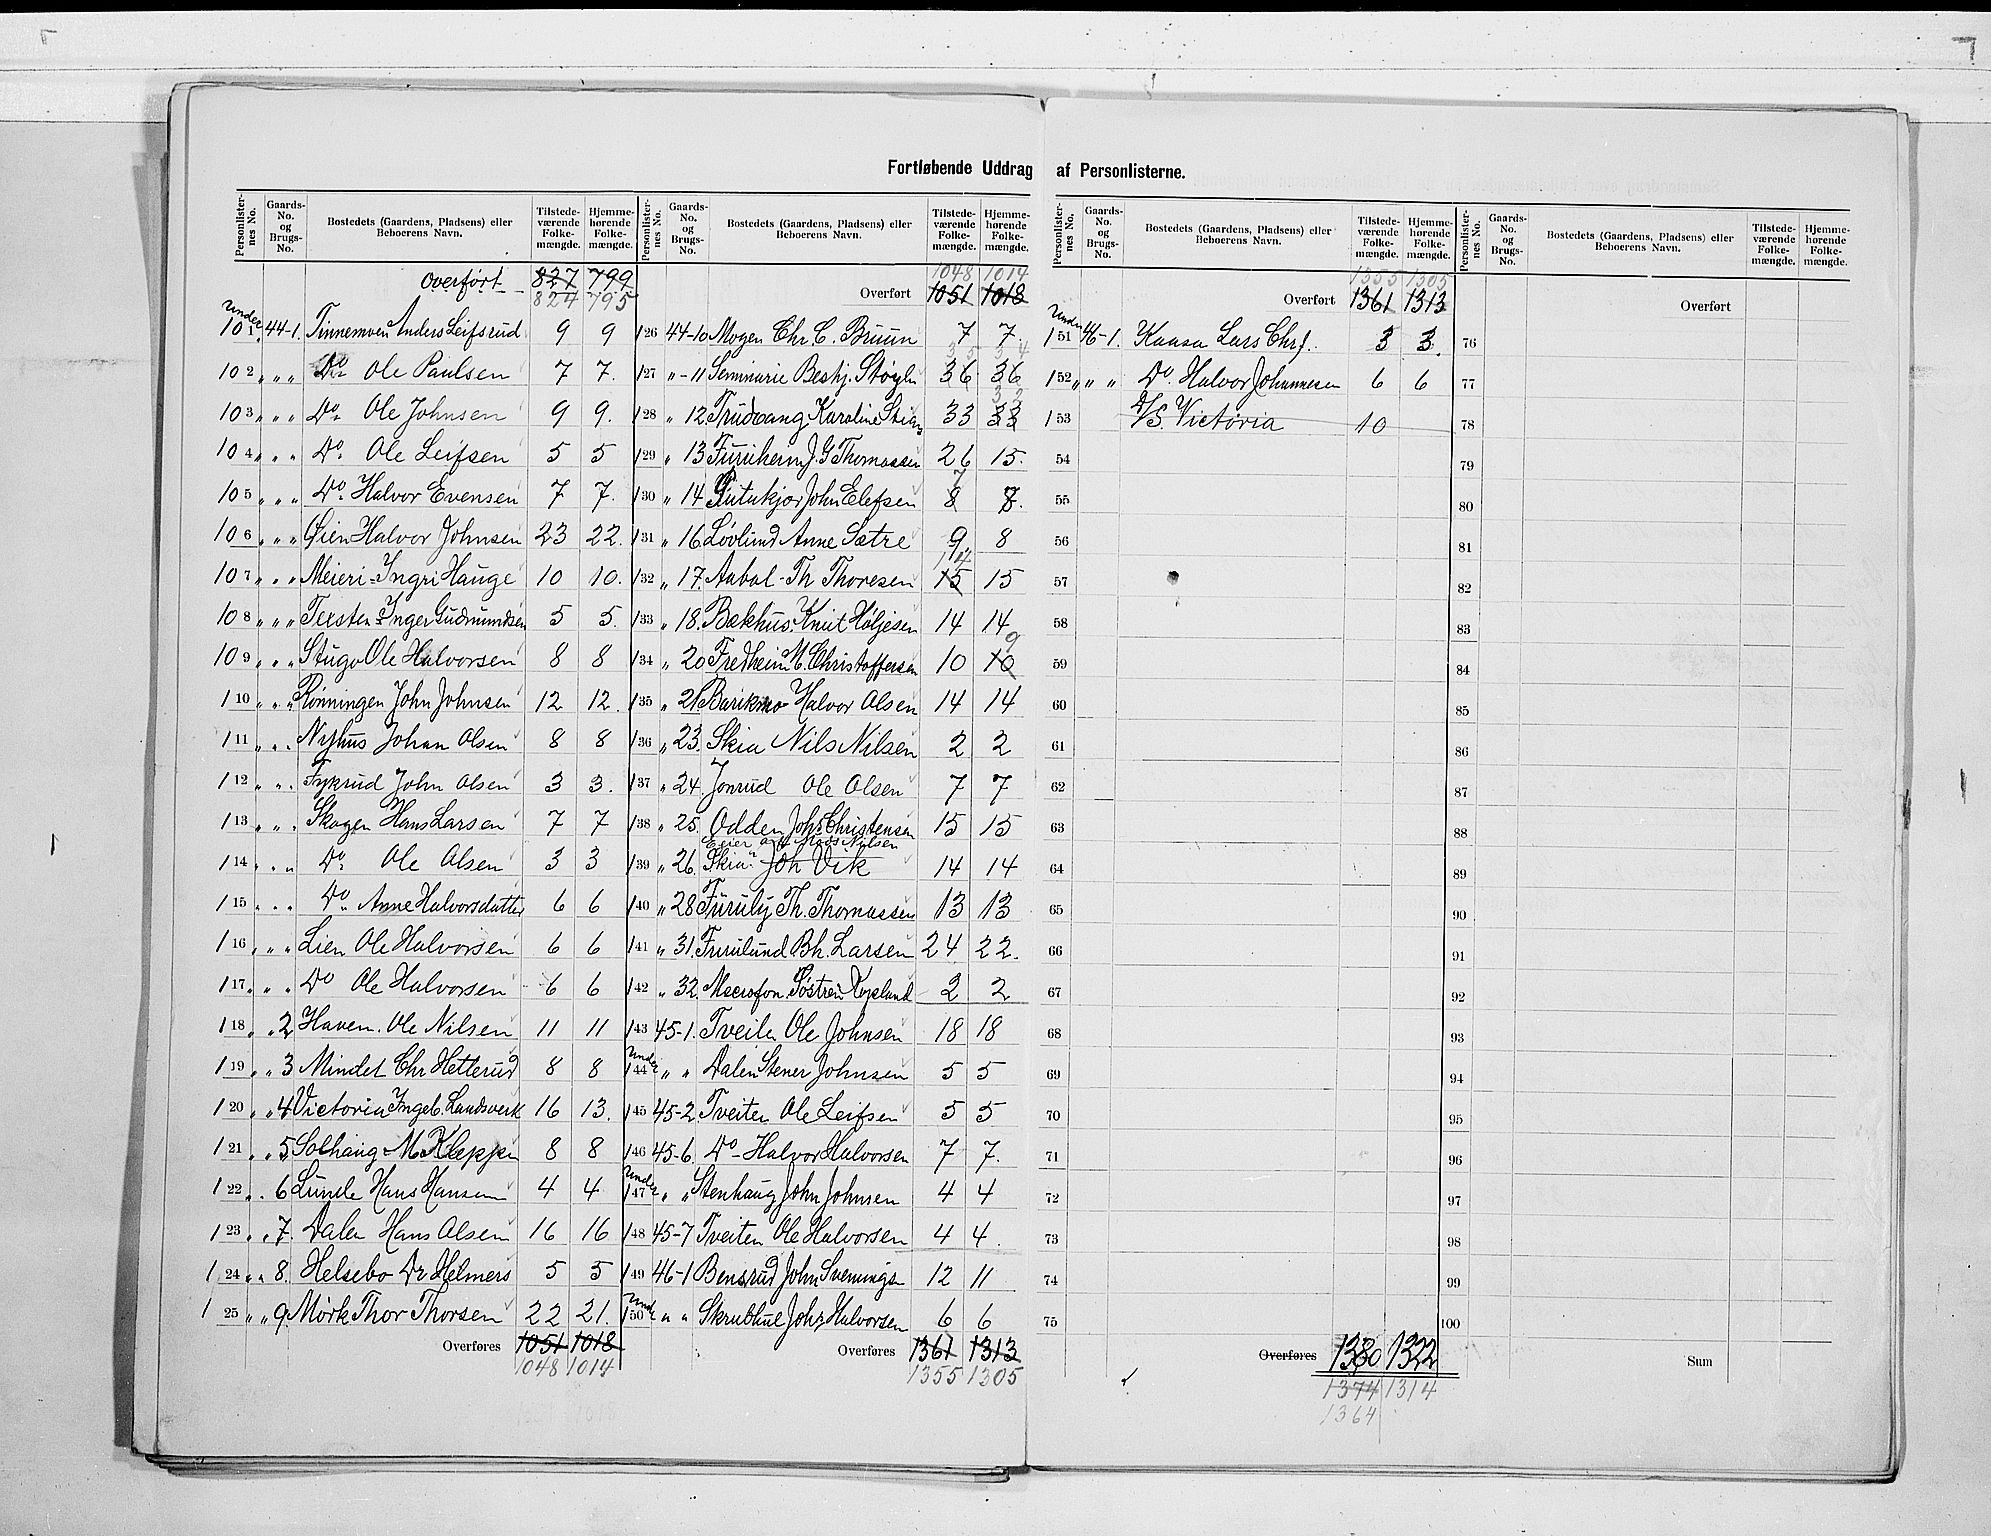 Fortløbende Uddrag af Personlisterne.
Personlister-nes No. | Gaards-No. og Brugs-No. | Bostedets (Gaardens, Pladsens) eller Beboerens Navn. | Tilstede-værende Folke-mængde. | Hjemme-hørende Folke-mængde.
Overført 827 799
824 795
Under
101 44-1. Tinnemoen Anders Leifsrud 9 9
102 " " " Do Ole Paulsen 7 7.
103 " " " Do Ole Johnsen 9 9.
104 " " " Do Ole Leifsen 5 5
105 " " " Do Halvor Evensen 7 7.
106 " " " Øien Halvor Johnsen 23 22.
107 " " " Meieri - Ingri Hauge 10 10.
108 " " " Teisten - Inger Gudmundsen 5 5.
109 " " " Stugo Ole Halvorsen 8 8
110 " " " Rønningen John Johnsen 12 12.
111 " " " Nyhus Johan Olsen 8 8
112 " " " Fykrud John Olsen 3 3.
113 " " " Skogen Hans Larsen 7 7
114 " " " Do Ole Olsen 3 3
115 " " " Do Anne Halvorsdatter 6 6
116 " " " Lien Ole Halvorsen 6 6
117 " " " Do Ole Halvorsen 6 6
118 " " 2 Haven. Ole Nilsen 11 11
119 " " 3 Mindet Chr Hetterud 8 8
120 " " 4 Victoria Ingeb. Landsverk 16 13.
121 " " 5 Solhaug M. Kleppen 8 8
122 " " 6 Lunde Hans Hansen 4 4
123 " " 7. Dalen Hans Olsen 16 16
124 " " 8. Helsebo Dr Helmers 5 5
125 " " 9. Mørk Thor Thorsen 22 21.
Overføres 1051 1018
1048 1014
Personlister-nes No. | Gaards-No. og Brugs-No. | Bostedets (Gaardens, Pladsens) eller Beboerens Navn. | Tilstede-værende Folke-mængde. | Hjemme-hørende Folke-mængde.
1048 1014
Overført 1051 1018
126 44-10 Mogen Chr. C. Bruun 7 7.
127 " - 11 Seminarie Besty. Støylen 36 36
128 " 12 Trudvang Karoline 33 33
129 " 13 Furuheim J. G Thomassen 26 15.
7
130 " 14 John Elefsen 8 7.
131 " 16 Løvlund Anne Sætre 9 8
14
132 " 17. Aabal - Th Thoresen 15 15
133 " 18. Bækhus. Knut Høljesen 14 14
9
134 " 20 Fredheim M. Christoffersen 10 10
135 " 21 Barikmo Halvor Olsen 14 14
136 " 23. Skia Nils Nilsen 2 2
137 " 24. Jonrud Ole Olsen 7 7
138 " 25. Odden Joh. Christensen 15 15
Eier af Mads Nilsen
139 " 26. Skia Joh Vik 14 14
140 " 28 Furuly Th. Thomassen 13 13
141 " 31. Furulund Bh. Larsen 24 22.
142 " 32. Søstren 2 2
143 45-1. Tveiten Ole Johnsen 18 18
Under
144 " " Dalen Stener Johnsen 5 5
145 45-2. Tveiten Ole Leifsen 5 5
146 45-6. Do - Halvor Halvorsen 7 7.
Under
147 " " Stenhaug John Johnsen 4 4
148 45-7 Tveiten Ole Halvorsen 4 4.
149 46-1 Bensrud John Svennings 12 11
Under
150 " " Skrubhul Johs Halvorsen 6 6
Overføres 1361 1313
1355 1305
Personlister-nes No. | Gaards-No. og Brugs-No. | Bostedets (Gaardens, Pladsens) eller Beboerens Navn. | Tilstede-værende Folke-mængde. | Hjemme-hørende Folke-mængde.
1355 1305
Overført 1361 1313
Under
151 46-1. Kaasa Lars Chrs. 3 3.
152 " " " Do. Halvor Johannesen 6 6
153 D/S. Victoria 10
54
55
56
57
58
59
60
61
62
63
64
65
66
67
68
69
70
71
72
73
74
75
Overføres 1380 1322
1374 1314
1364
Personlister-nes No. | Gaards-No. og Brugs-No. | Bostedets (Gaardens, Pladsens) eller Beboerens Navn. | Tilstede-værende Folke-mængde. | Hjemme-hørende Folke-mængde.
Overført
76
77
78
79
80
81
82
83
84
85
86
87
88
89
90
91
92
93
94
95
96
97
98
99
100
Sum